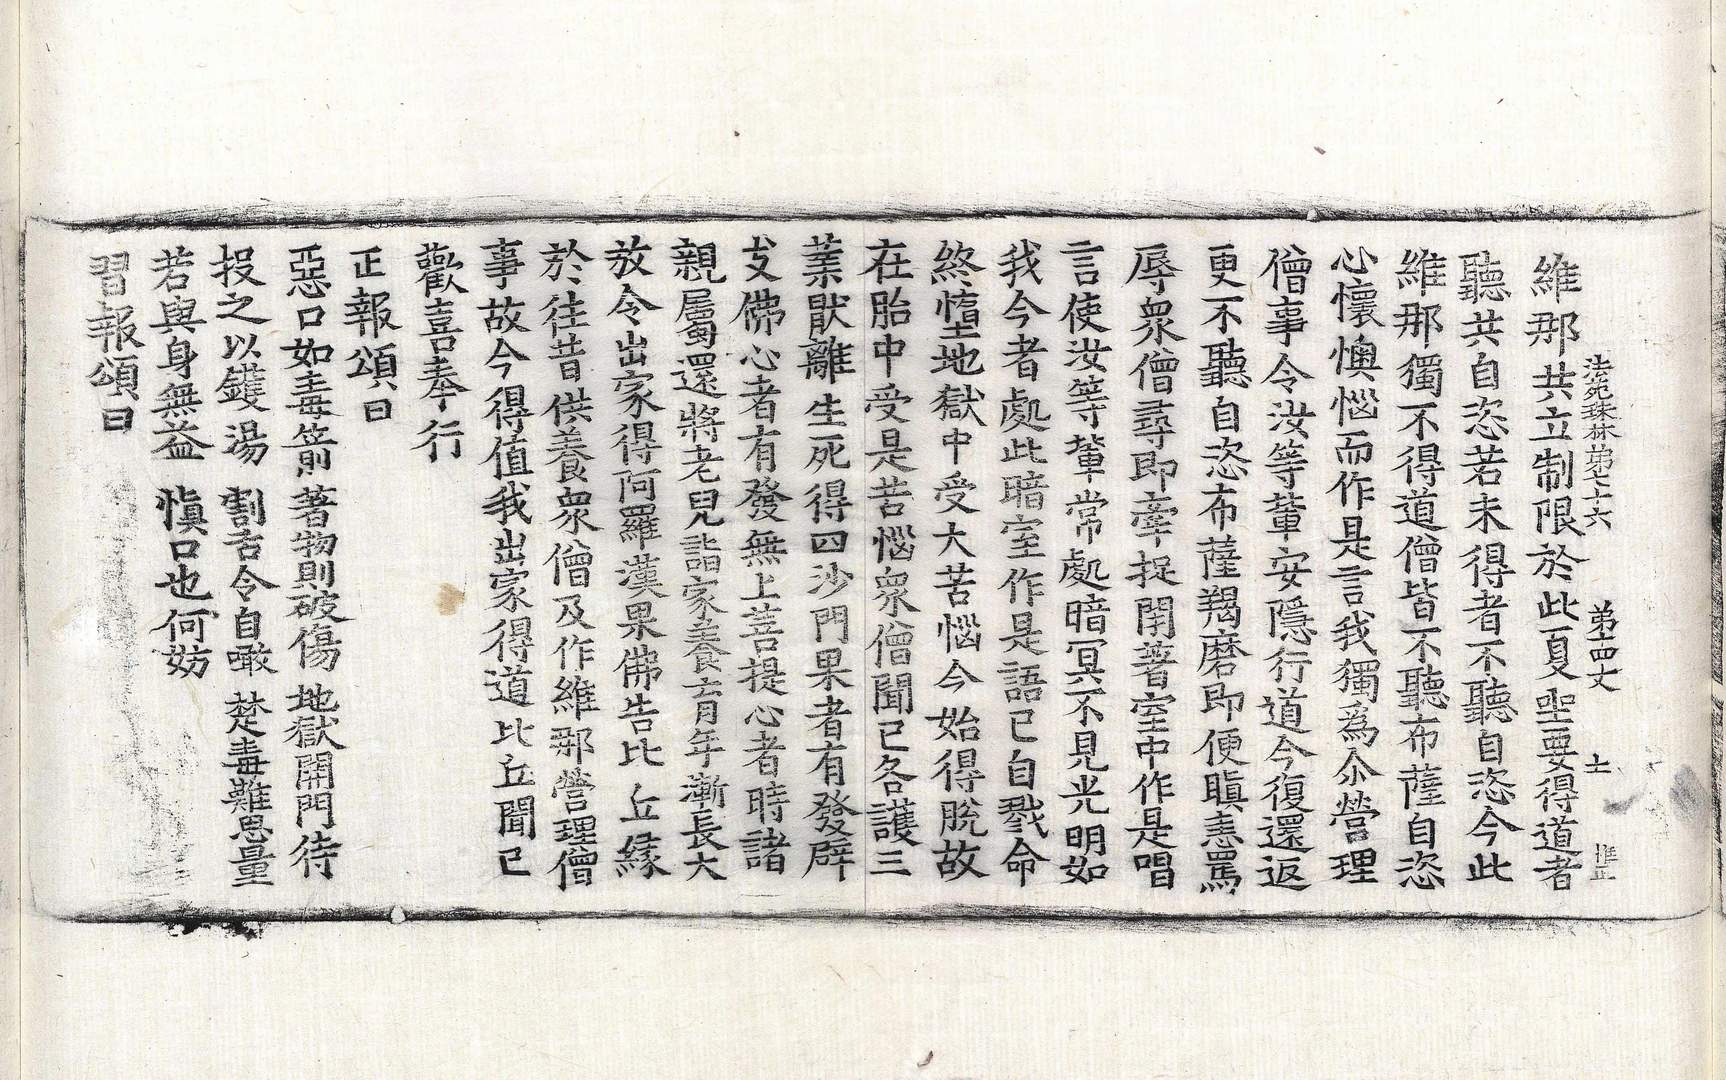 法苑珠林第七六 第十四丈 士
維那共立制限於此夏聖要得道者
聽共自恣若未得者不聽自恣今此
維那獨不得道僧皆不聽布薩自恣
心懷懊惱而作是言我獨爲尒營理
僧事令汝等輩安隱行道今復還返
更不聽自恣布薩羯磨即便瞋恚罵
辱衆僧尋即牽捉閉著室中作是唱
言使汝等輩常處暗冥不見光明如
我今者處此暗室作是語已自戮命
終墮地獄中受大苦惱今始得脫故
在胎中受是苦惱衆僧聞已各護三
業猒離生死得四沙門果者有發辟
支佛心者有發無上菩提心者時諸
親屬還將老兒詣家養育年漸長大
放令出家得阿羅漢果佛告比丘緣
於往昔供養衆僧及作維那營理僧
事故今得值我出家得道比丘聞已
歡喜奉行
正報頌曰
惡口如毒箭 著物則破傷 地獄開門待
投之以鑊湯 割舌令自噉 楚毒難思量
若與身無益 愼口也何妨
習報頌曰